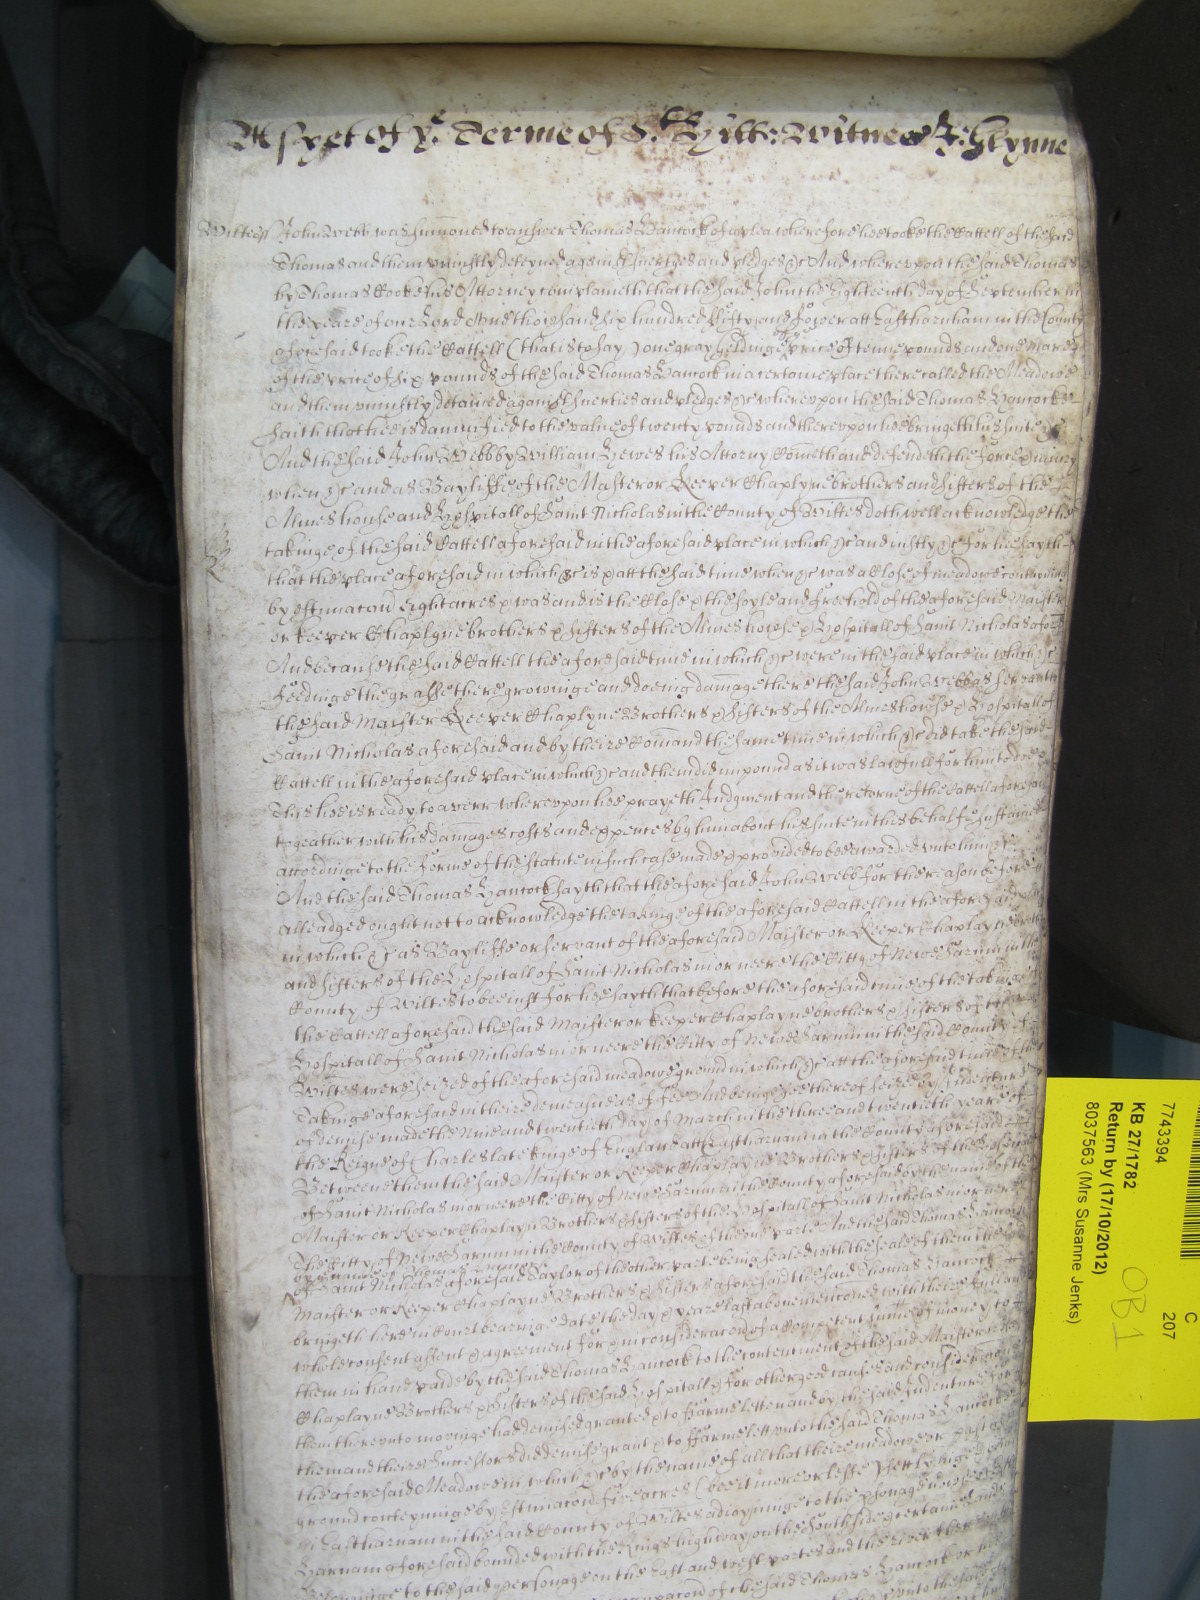 As yet of ye Terme of St Hill: Witnes J: Glynne
Wiltess John Webb was summoned to answer Thomas Hancock of a plea wherefore hee tooke the Cattell of the said
Thomas and them uniustly deteyned against suerties and pledges &c And whereupon the said Thomas
by Thomas Cooke his Attorney complaineth that the said John the Eighteenth day of September in
the yeare of our Lord One thowsand six hundred fifty and fower att Eastharnham in the County
aforesaid tooke the Cattell (that is to say) one gray Geldinge price of tenne pounds and one Mare
of the price of six pounds of the said Thomas Hancock in a certaine place there called the Meadowe
and them uniustly detained against suerties and pledges &c whereupon the said Thomas Hancocke
saith that hee is damnified to the value of twenty pounds and thereupon hee bringeth his suite &c
And the said John Webb by William Hewes his Attorny Cometh and defendeth the force & iniury
when &c and as Bayliffe of the Master or Keeper Chaplyne brothers and sisters of the
Almeshouse and Hospitall of Saint Nicholas in the County of Wiltes doth well acknowledge the
takinge of the said Cattell aforesaid in the aforesaid place in which &c and iustly &c for hee sayth
that the place aforesaid in which &c is & att the said time when &c was a Close of meadowe conteyning
by estimacon Eight acres & was and is the Close & the soyle and freehold of the aforesaid Maister
or keeper Chaplyne brothers & sisters of the Almeshowse & Hospitall of Saint Nicholas aforesd
And because the said Cattell the aforesaid time in which &c were in the said place in which &c
feedinge the grasse there growinge and doeing damage there the said John Webb as servant to
the said Maister Keeper Chaplyne Brothers & sisters of the Almeshowse & Hospitall of
Saint Nicholas aforesaid and by theire Comand the same time in which &c did take the said
Cattell in the aforesaid place in which &c and them did impound as it was lawfull for him to doe
This hee is ready to averr whereupon hee prayeth Judgment and the retorne of the Cattell aforesaid
togeather with his damages costs and expences by him about his suite in this behalfe sustained
accordinge to the forme of the statute in such case made & provided to bee awarded unto him &c
And the said Thomas Hancock sayth that the aforesaid John Webb for the reason before
alleadged ought not to acknowledge the takinge of the aforesaid Cattell in the aforesaid place
in which &c as Bayliffe or servant of the aforesaid Maister or Keeper Chaplayne brothers
and sisters of the Hospitall of Saint Nicholas in or neere the Citty of Newe Sarum in the
County of Wiltes to bee iust for hee sayth that before the aforesaid time of the takinge of
the Cattell aforesaid the said Maister or keeper Chaplayne brothers & sisters of the
Hospitall of Saint Nicholas in or neere the Citty of Newe Sarum in the said County of
Wiltes were seized of the aforesaid meadowe ground in which &c att the aforesaid time of the
Takinge aforesaid in theire demeasne as of fee And beinge soe thereof seized by Indenture
of demise made the Nine and twentieth day of March in the three and twentieth yeare of
the Reigne of Charles late Kinge of England att Eastharnam in the County aforesaid
Betweene them the said Maister or Keeper Chaplayne Brothers & sisters of the Hospitall
of Saint Nicholas in or neere the Citty of Newe Sarum in the County aforesaid by the name of the
Maister or Keeper Chaplayn Brothers & sisters of the Hospitall of Saint Nicholas in or neere
The Citty of Newe Sarum in the County of Wiltes of the one parte And the said Thomas Hancock
by the name of Thomas
of Saint Nicholas aforesaid Taylor of the other parte being sealed with the seale of them the said
Maister or Keeper Chaplayne Brothers & sisters aforesaid the said Thomas Hancock
bringeth here in Court bearinge date the day & yeare last abovementioned with theire full and
whole consent assent & agreement for & in consideracon of a competent summe of money to
them in hand paide by the said Thomas Hancock to the contentment of the said Maister
Chaplayne Brothers & Sisters of the said Hospitall & for other good causes and consideracons
them thereunto movinge had demised granted & to farme letten and by the said Indenture for
them and theire Successors did demise grant & to farme lett unto the said Thomas Hancocke
the aforesaid Meadowe in which &c by the name of all that theire meadowe or pasture
ground conteyninge by Estimacon five acres (bee it more or lesse)
in Eastharnam in the said County of Wiltes adioyninge to the &sonage
Harnam aforesaid bounded with the Kings highway on the South side & certaine lands
belonginge to the said personage on the East and west partes and the river there
of the said Thomas Hancock or
C
207
7743394
KB 27/1782
Return by (17/10/2012)
8037563 (Mrs Susanne Jenks)
OB 1